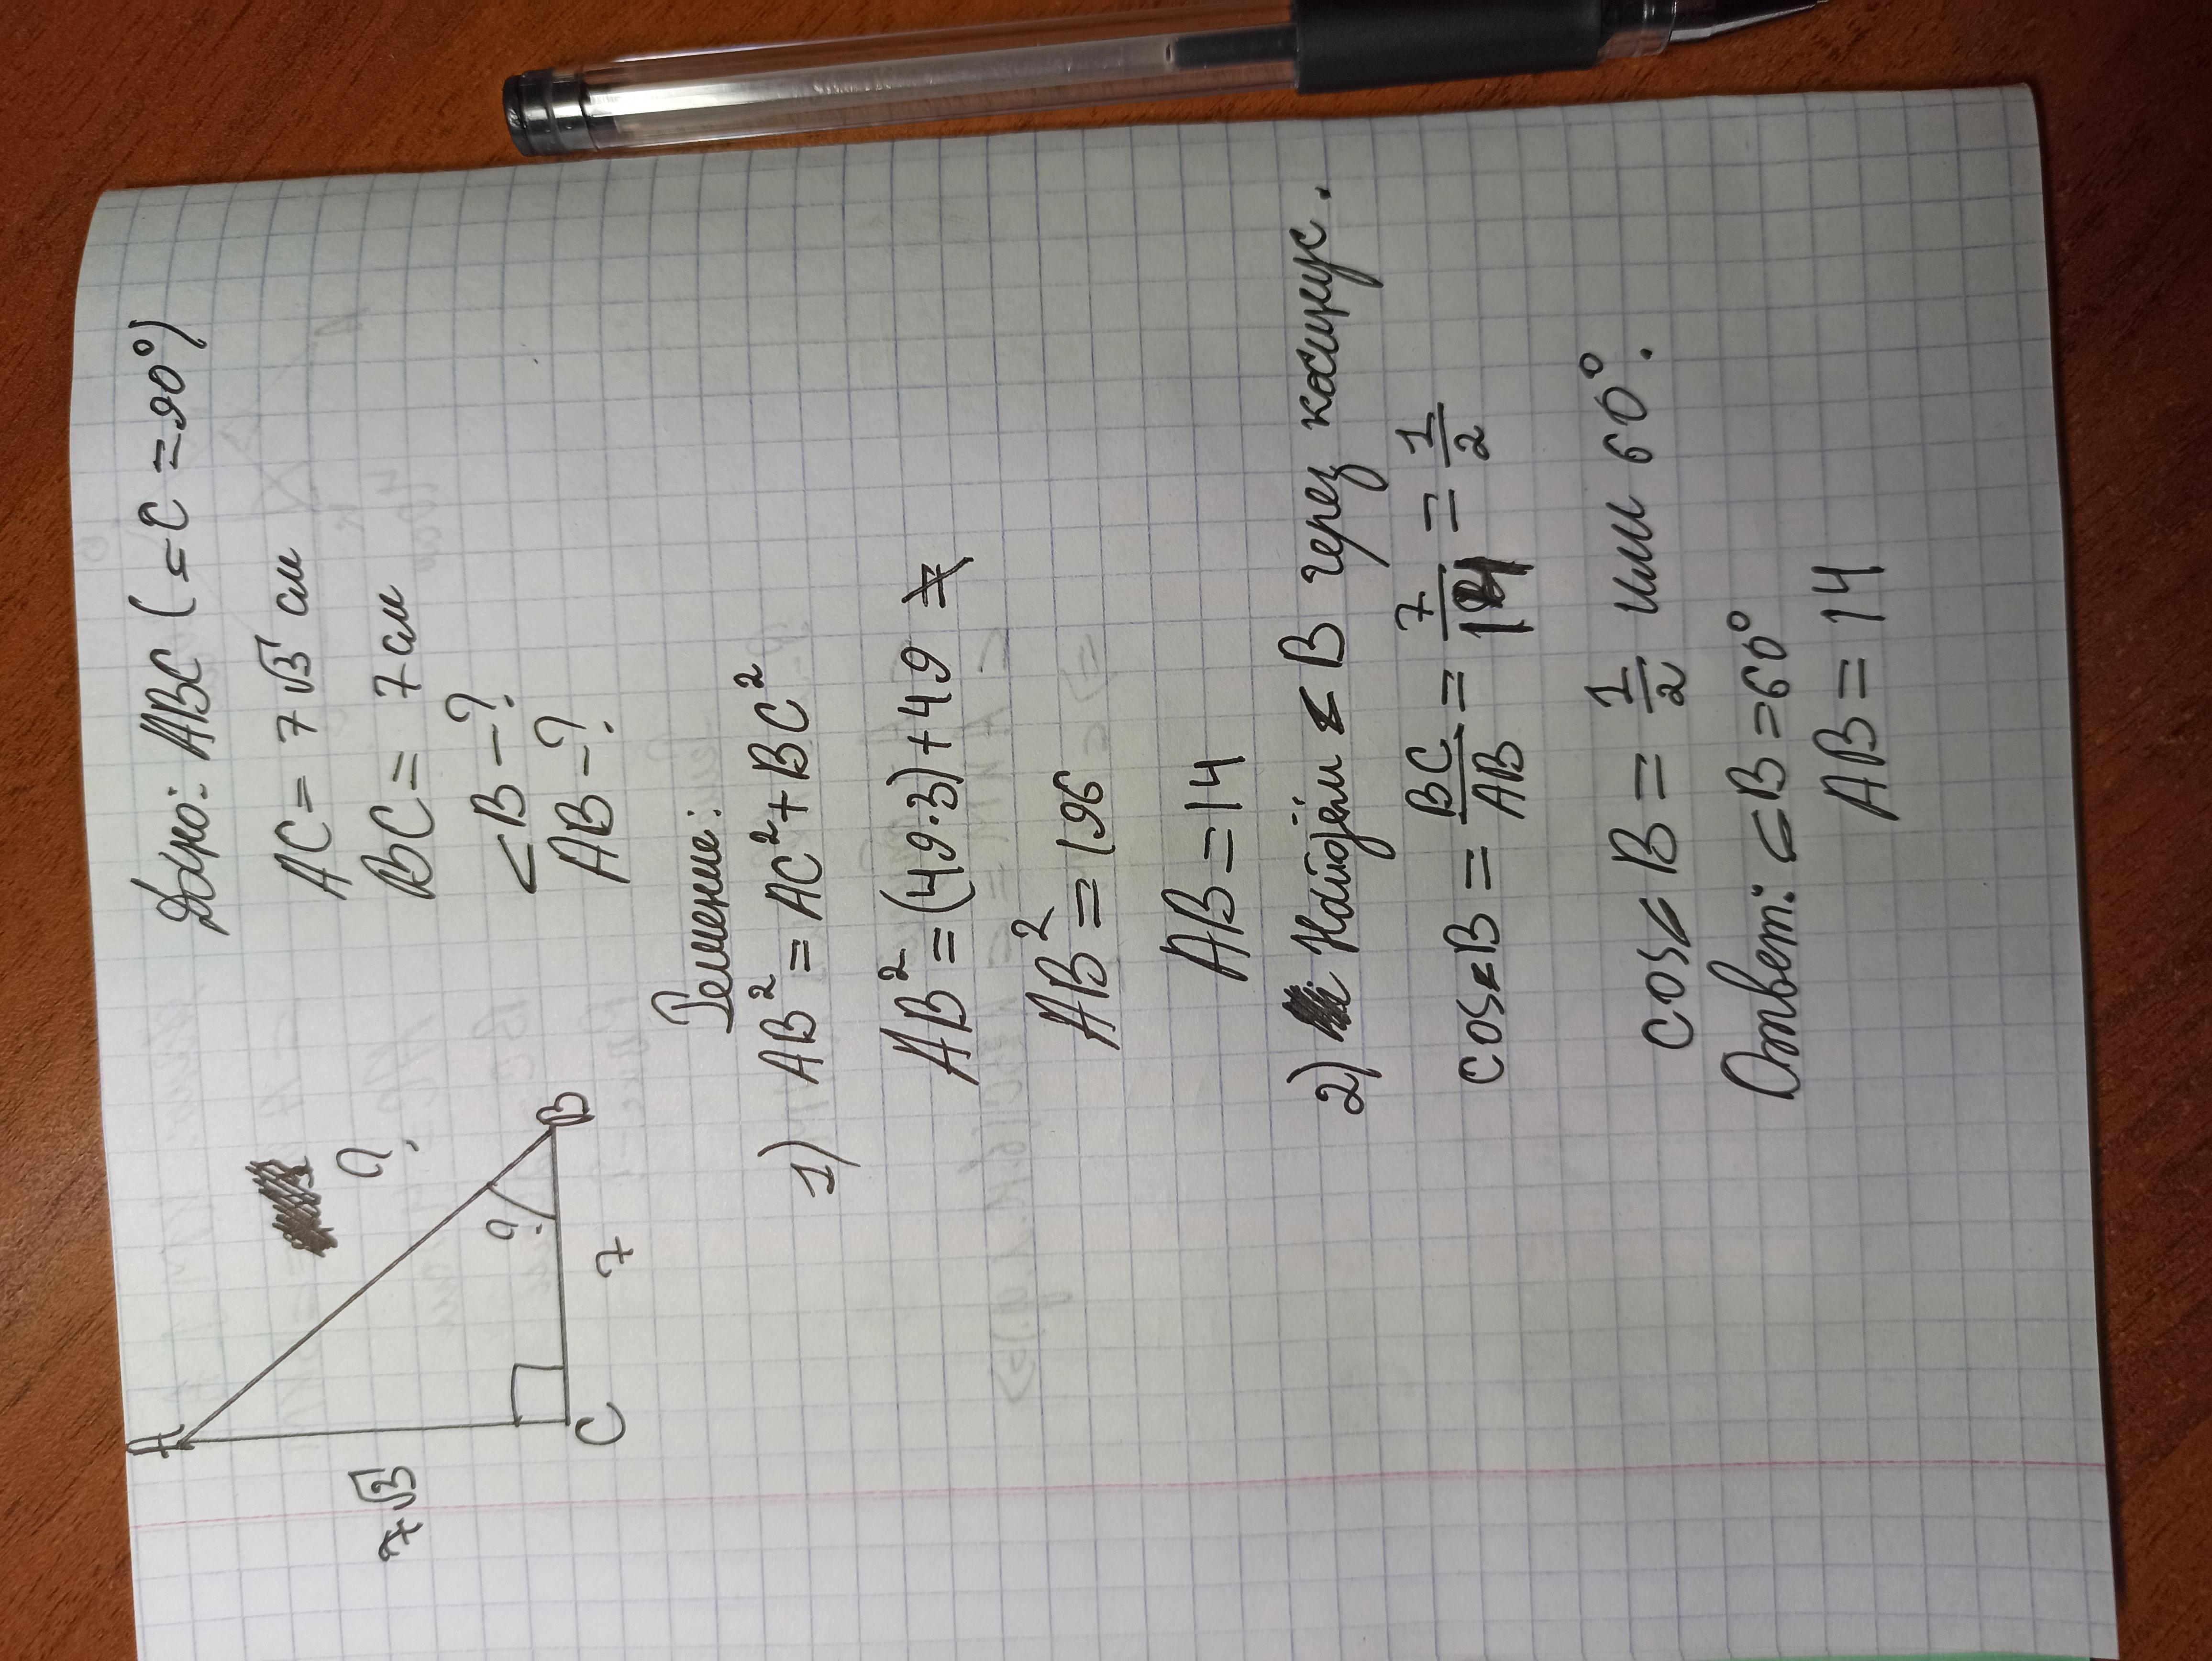 Дано: ABC (∠C = 90°)
AC = 7√3 см
BC = 7 см
∠B - ?
AB - ?
A
?
7√3
?
C
7
B
Решение:
1) AB² = AC² + BC²
AB² = (49·3) + 49
AB² = 196
AB = 14
2) Найдём ∠B через косинус.
cos∠B = BC/AB = 7/14 = 1/2
cos∠B = 1/2 или 60°.
Ответ: ∠B = 60°
AB = 14